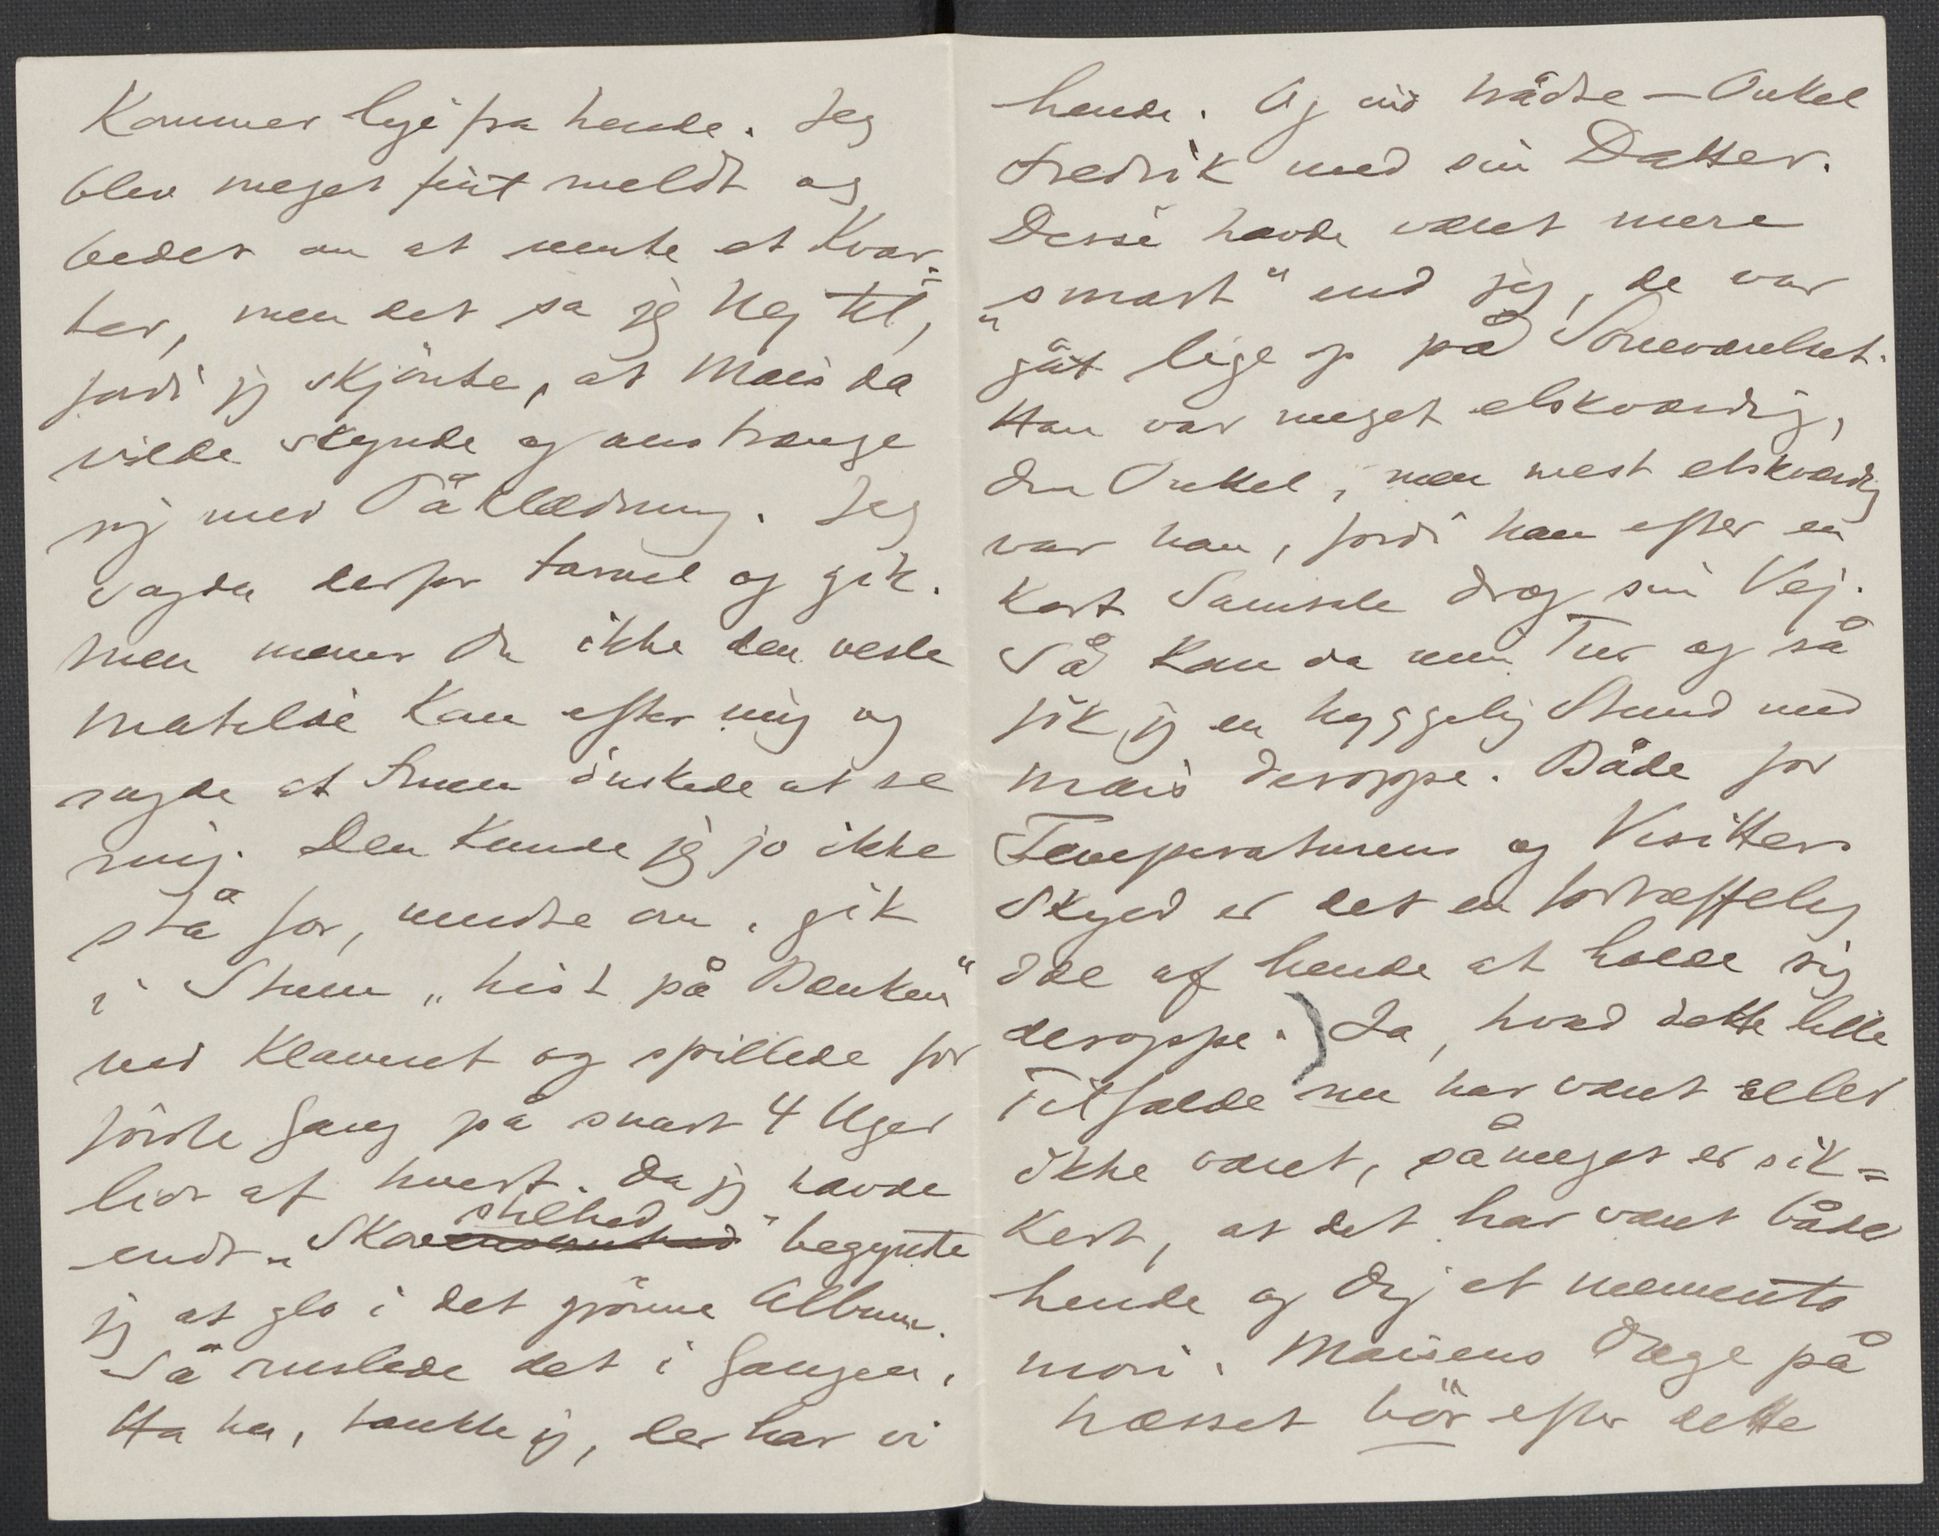 Kommer lige fra hende. Jeg
blev meget fint meldt og
bedet om at vente et Kvar-
ter, men det sa jeg Nej til,
fordi jeg skjønte, at Mais da
vilde skynde og anstrænge
sig med Påklædning. Jeg
sagde derfor farvel og gik.
Men mener Du ikke den vesle
Matilde kom efter mig og
sagde at Fruen ønskede at se
mig. Den kunde jeg jo ikke
stå for, vendte om, gik
i Stuen „hist på Bænken"
ved Klaveret og spillede for
første Gang på snart 4 Uger
lidt af hvert. Da jeg havde
stilhed
endt „Skovensomhed" begynte
jeg at glo i det grønne Album.
Så ruslede det i Gangen,
Ha ha, tænkte jeg, der har vi
hende. Og ind trådte – Onkel
Fredrik med sin Datter.
Disse havde været mere
„smart" end jeg, de var
gåt lige op på Soveværelset.
Han var meget elskværdig,
den Onkel, men mest elskværdig
var han, fordi han efter en
kort Samtale drog sin Vej.
Så kom da min Tur og så
fik jeg en hyggelig Stund med
Mais deroppe. Både for
Temperaturens og Visitters
Skyld er det en fortræffelig
Ide af hende at holde sig
deroppe.) Ja, hvad dette lille
Tilfælde nu har været eller
ikke været, såmeget er sik=
kert, at det har været både
hende og Dig et memento
mori. Maisens Øge på
hæsset bør efter dette